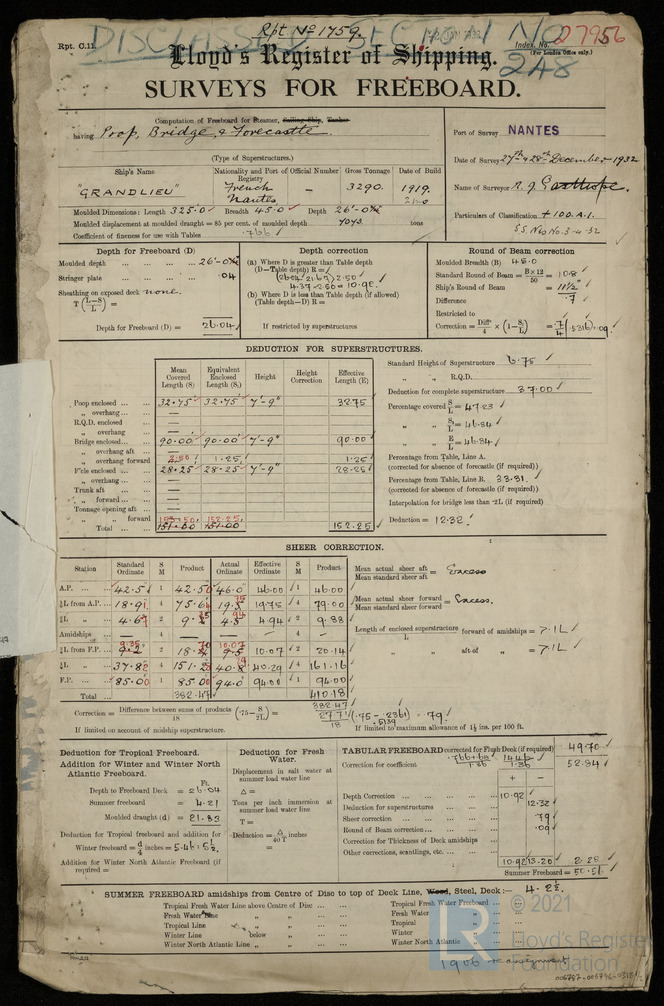 Rpt No 1759
Rpt. C.11.
Index. No. 27956
(For London Office only.)
Lloyd's Register of Shipping.
248
SURVEYS FOR FREEBOARD.
Computation of Freeboard for Steamer, Sailing Ship, Tanker
having Poop, Bridge, & Forecastle.
(Type of Superstructures.)
Port of Survey NANTES
Date of Survey 27th & 28th December 1932
Name of Surveyor
Particulars of Classification + 100.A.1.
S.S. No No. 3-4-32
Ship's Name Nationality and Port of Registry Official Number Gross Tonnage Date of Build
"GRANDLIEU" French Nantes – 3290. 1919.
Moulded Dimensions: Length 325.0 Breadth 45.0 Depth 26'-0
Moulded displacement at moulded draught = 85 per cent. of moulded depth tons
Coefficient of fineness for use with Tables .766
Depth for Freeboard (D)
Moulded depth 26'-0
Stringer plate .04
Sheathing on exposed deck none.
T(L-S/L) =
Depth for Freeboard (D) = 26.04
Depth correction
(a) Where D is greater than Table depth
(D—Table depth) R =
(26.04-21.67) 2.50
4.37 × 2.50 = 10.92.
(b) Where D is less than Table depth (if allowed)
(Table depth—D) R =
If restricted by superstructures
Round of Beam correction
Moulded Breadth (B) 45.0
Standard Round of Beam = B×12/50 = 10.8
Ship's Round of Beam = 11½"
Difference .7
Restricted to
Correction = Diff/4 × (1-S/L) = .7/4 (.5316) = .09
DEDUCTION FOR SUPERSTRUCTURES.
Mean Covered Length (S) Equivalent Enclosed Length (S₁) Height Height Correction Effective Length (E)
Poop enclosed 32.75 32.75 7'-9" 32.75
„ overhang —
R.Q.D. enclosed —
„ overhang —
Bridge enclosed 90.00 90.00 7'-9" 90.00
„ overhang aft —
„ overhang forward 2.50 1.25 1.25
F'cle enclosed 28.25 28.25 7'-9" 28.25
„ overhang —
Trunk aft —
„ forward —
Tonnage opening aft —
„ „ forward 153.50 152.25
Total 151.00 151.00 152.25
Standard Height of Superstructure 6.75
„ „ R.Q.D.
Deduction for complete superstructure 37.00
Percentage covered S/L = 47.23
„ „ S₁/L = 46.84
„ „ E/L = 46.84
Percentage from Table, Line A.
(corrected for absence of forecastle (if required))
Percentage from Table, Line B. 33.31
(corrected for absence of forecastle (if required))
Interpolation for bridge less than .2L (if required)
Deduction = 12.32
SHEER CORRECTION.
Station Standard Ordinate S M Product Actual Ordinate Effective Ordinate S M Product
A.P. 42.5 1 42.50 46.0 46.00 1 46.00
⅙L from A.P. 18.91 4 75.64 19.75 19.75 4 79.00
⅓L „ 4.67 2 9.35 4.94 4.94 2 9.88
Amidships — 4 — — — 4 —
⅓L from F.P. 9.35 2 18.70 10.07 10.07 2 20.14
⅙L „ 37.82 4 151.28 40.29 40.29 4 161.16
F.P. 85.00 1 85.00 94.0 94.00 1 94.00
Total 382.47 410.18
Mean actual sheer aft / Mean standard sheer aft = Excess
Mean actual sheer forward / Mean standard sheer forward = Excess.
Length of enclosed superstructure / L forward of amidships = 7.1L
„ „ aft of „ = 7.1L
Correction = Difference between sums of products / 18 (.75 - S/2L) = 27.71/18 (.75 - .2361) = .79
If limited on account of midship superstructure.
If limited to maximum allowance of 1½ ins. per 100 ft.
Deduction for Tropical Freeboard.
Addition for Winter and Winter North Atlantic Freeboard.
Ft.
Depth to Freeboard Deck = 26.04
Summer freeboard = 4.21
Moulded draught (d) = 21.83
Deduction for Tropical freeboard and addition for
Winter freeboard = d/4 inches = 5.46 : 5½
Addition for Winter North Atlantic Freeboard (if required) =
Deduction for Fresh Water.
Displacement in salt water at summer load water line
Δ =
Tons per inch immersion at summer load water line
T =
Deduction = Δ/40T inches
=
TABULAR FREEBOARD corrected for Flush Deck (if required) 49.70
Correction for coefficient .766+.68/1.36 1.446/1.36 52.84
+ −
Depth Correction 10.92
Deduction for superstructures 12.32
Sheer correction .79
Round of Beam correction .09
Correction for Thickness of Deck amidships
Other corrections, scantlings, etc.
10.92 13.20 2.28
Summer Freeboard = 50.56
SUMMER FREEBOARD amidships from Centre of Disc to top of Deck Line, Wood, Steel, Deck:— 4-2½
Tropical Fresh Water Line above Centre of Disc
Fresh Water Line „ „
Tropical Line „ „
Winter Line below „
Winter North Atlantic Line „ „
Tropical Fresh Water Freeboard
Fresh Water „
Tropical „
Winter „
Winter North Atlantic „
1906
LR
© 2021
Lloyd's Register
Foundation